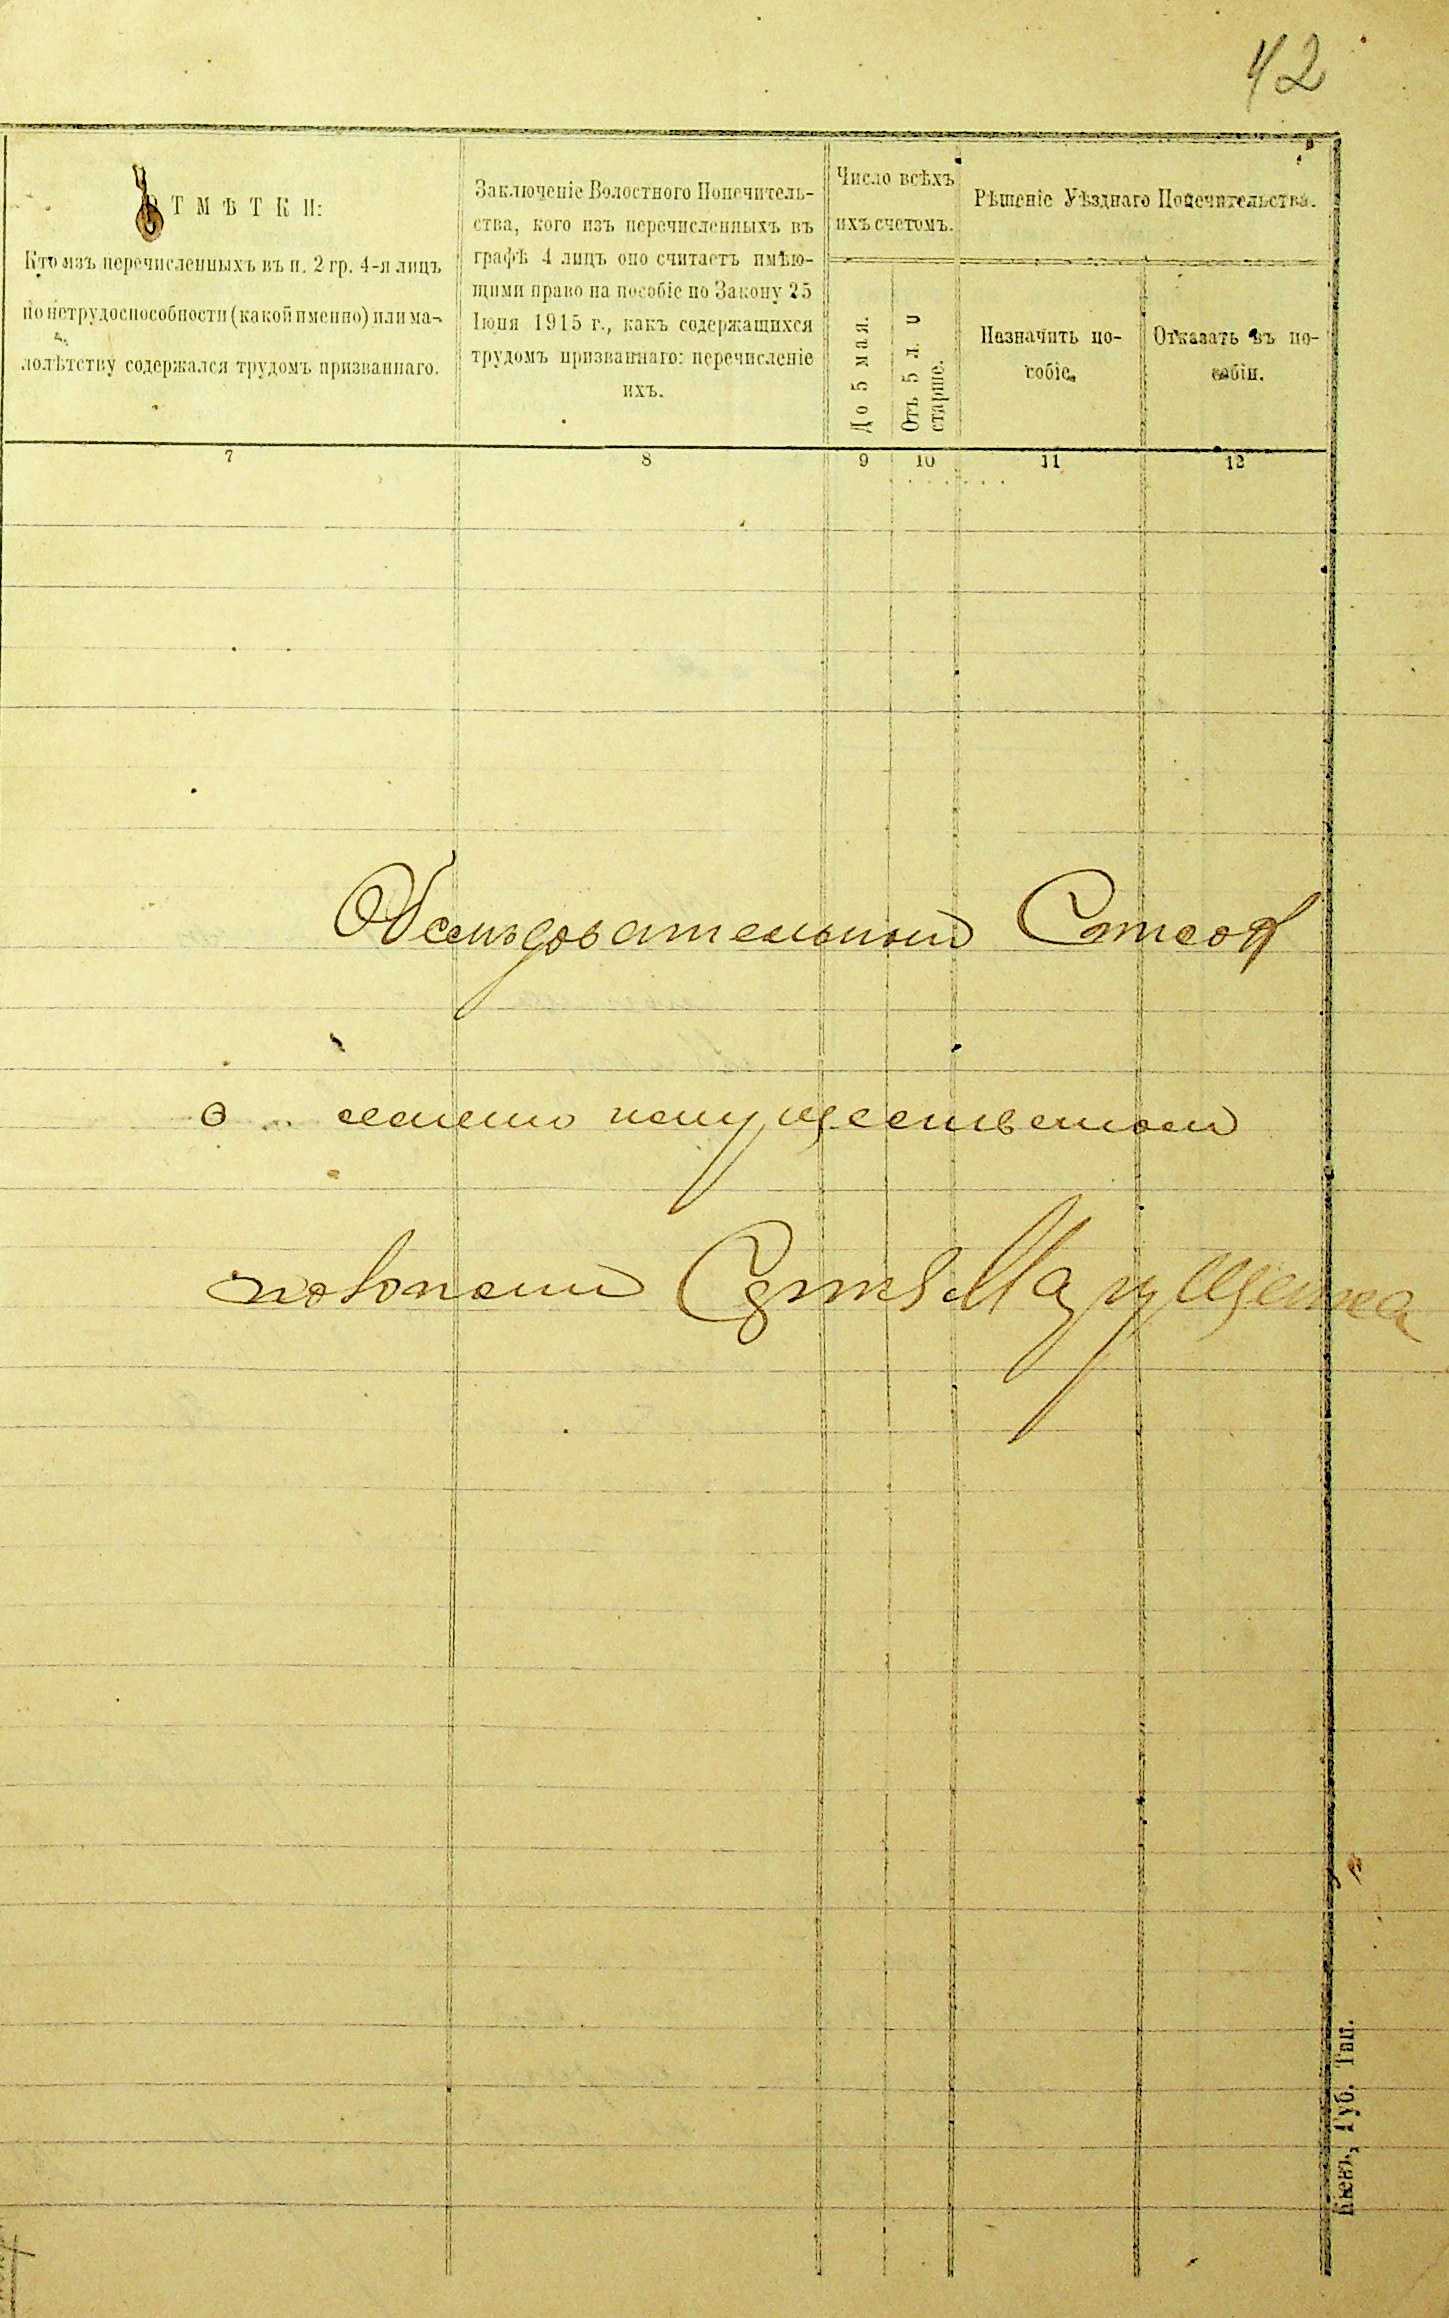 42
ОТМѢТКИ:
Кто изъ перечисленныхъ въ п. 2 гр. 4-я лицъ
по нетрудоспособности (какой именно) или ма-
лолѣтству содержался трудомъ призваннаго.
Заключеніе Волостного Попечитель-
ства, кого изъ перечисленныхъ въ
графѣ 4 лицъ оно считаетъ имѣю-
щими право на пособіе по Закону 25
Іюня 1915 г., какъ содержащихся
трудомъ призваннаго: перечисленіе
ихъ.
Число всѣхъ
ихъ счетомъ.
До 5 мая.
Отъ 5 л. и
старше.
Рѣшеніе Уѣзднаго Попечительства.
Назначить по-
собіе.
Отказать въ по-
собіи.
7 8 9 10 11 12
Обслѣдовательный Список
о имущественном
Кіевъ, Губ. Тип.